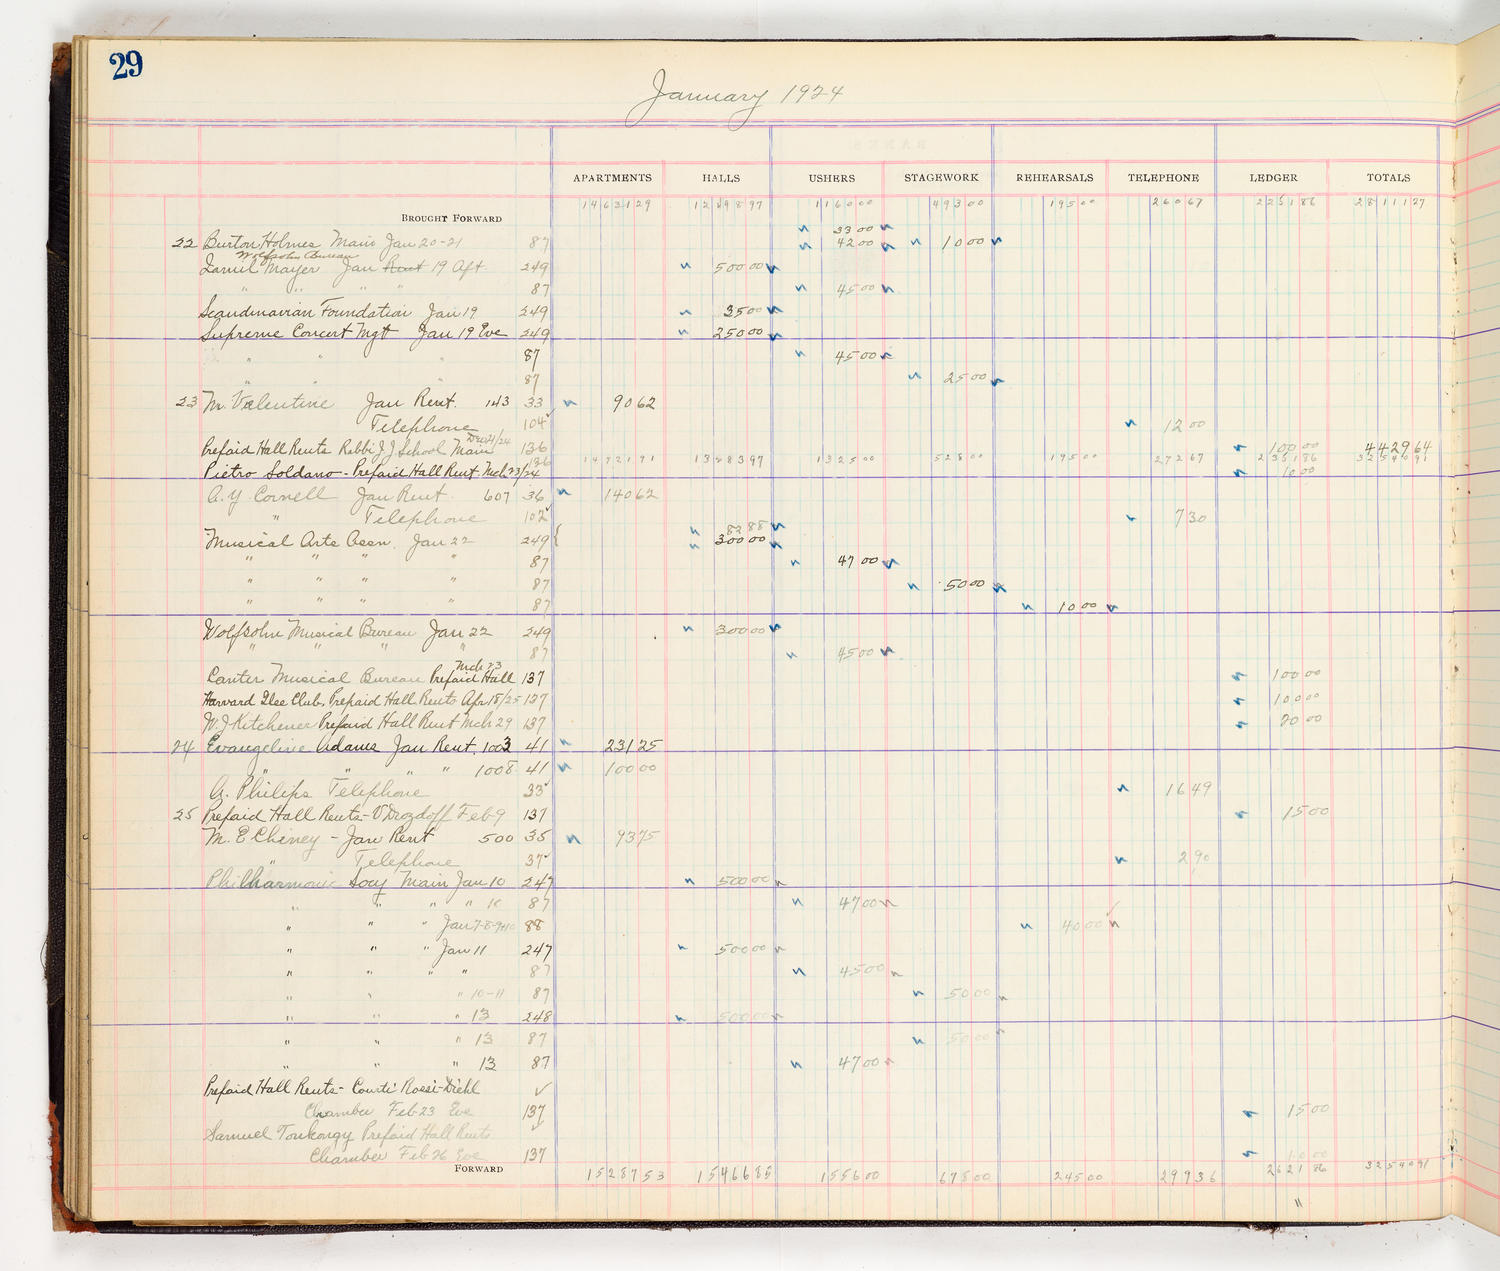 29
January 1924
APARTMENTS HALLS USHERS STAGEWORK REHEARSALS TELEPHONE LEDGER TOTALS
BROUGHT FORWARD 14631 29 12898 97 1160 00 493 00 195 00 260 67 2251 86
33 00
22 Burton Holmes Main Jan 20-21 87 42 00 10 00
Wolfsohn Bureau
Mayer Jan Rent 19 Aft 249 500 00
" " " " 87 45 00
Scandinavian Foundation Jan 19 249 35 00
Supreme Concert Mgt Jan 19 Eve 249 250 00
" " " 87 45 00
" " " 87 25 00
23 M. Valentine Jan Rent. 143 33 90 62
Telephone 104 12 00
Dec 21/24
Prefaid Hall Rents Rabbi J J School Main 136 100 00 4429 64
14721 91 13683 97 1325 00 528 00 195 00 272 67 2351 86 32540 91
Pietro Soldano - Prefaid Hall Rent Mch 23/24 136 10 00
A. Y Cornell Jan Rent 607 36 140 62
" Telephone 102 7 30
82 88
Musical Arts Assn. Jan 22 249 { 300 00
" " " " 87 47 00
" " " " 87 50 00
" " " " 87 10 00
Wolfsohn Musical Bureau Jan 22 249 300 00
" " " " 87 45 00
Mch 23
Canter Musical Bureau Prefaid Hall 137 100 00
Harvard Glee Club, Prefaid Hall Rents Apr 18/25 137 100 00
W. J Kitchener Prefaid Hall Rent Mch 29 137 20 00
24 Evangeline Adams Jan Rent. 1003 41 231 25
" " " " 1008 41 100 00
A. Philips Telephone 33 16 49
25 Prefaid Hall Rents - V Drozdoff Feb 9 137 15 00
M. E Cheney - Jan Rent 500 35 93 75
" Telephone 37 2 90
Philharmonic Socy Main Jan 10 247 500 00
" " " " 10 87 47 00
" " " Jan 7-8-9+10 88 40 00
" " " Jan 11 247 500 00
" " " " 87 45 00
" " " 10-11 87 50 00
" " " 13 248 500 00
" " " 13 87 50 00
" " " 13 87 47 00
Prefaid Hall Rents - Courti Rossi-Diehl
Chamber Feb 23 Eve 137 15 00
Samuel Prefaid Hall Rents
Chamber Feb 26 Eve 137 10 00
FORWARD 15287 53 15466 85 1556 00 678 00 245 00 299 36 2621 86 32540 91
"